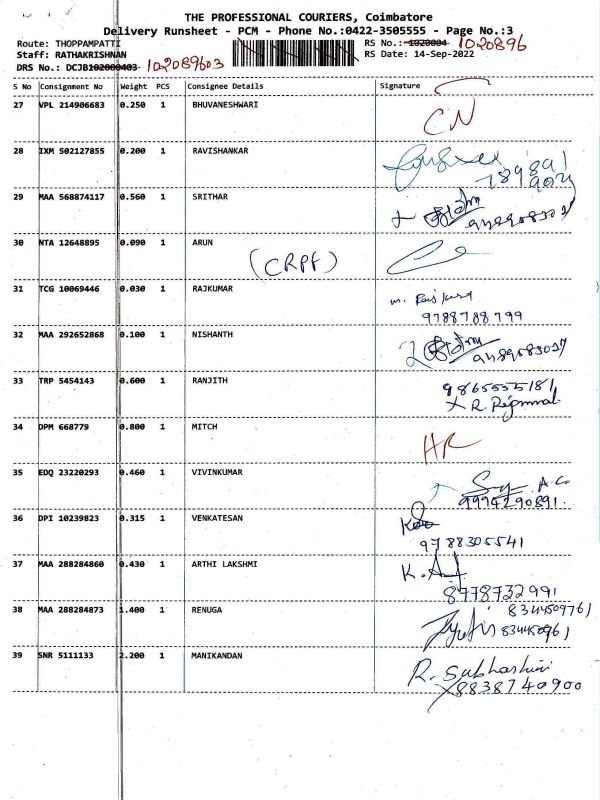 THE PROFESSIONAL COURIERS, Coimbatore
Delivery Runsheet - PCM - Phone No.:0422-3505555 - Page No.:3
Route: THOPPAMPATTI RS No.: 1020004 1020896
Staff: RATHAKRISHNAN RS Date: 14-Sep-2022
DRS No.: DCJB102000403 102089603
S No Consignment No Weight PCS Consignee Details Signature
27 VPL 214906683 0.250 1 BHUVANESHWARI CN
28 IXM 502127855 0.200 1 RAVISHANKAR
29 MAA 568874117 0.560 1 SRITHAR
30 NTA 12648895 0.090 1 ARUN
(CRPF)
31 TCG 10069446 0.030 1 RAJKUMAR
9788788799
32 MAA 292652868 0.100 1 NISHANTH
33 TRP 5454143 0.600 1 RANJITH 9865555181
34 DPM 668779 0.800 1 MITCH
35 EDQ 23220293 0.460 1 VIVINKUMAR
9994290891.
36 DPI 10239823 0.315 1 VENKATESAN
9788305541
37 MAA 288284860 0.430 1 ARTHI LAKSHMI
8778732991
38 MAA 288284873 1.400 1 RENUGA
39 SNR 5111133 2.200 1 MANIKANDAN
R. Subhashini
8838740900